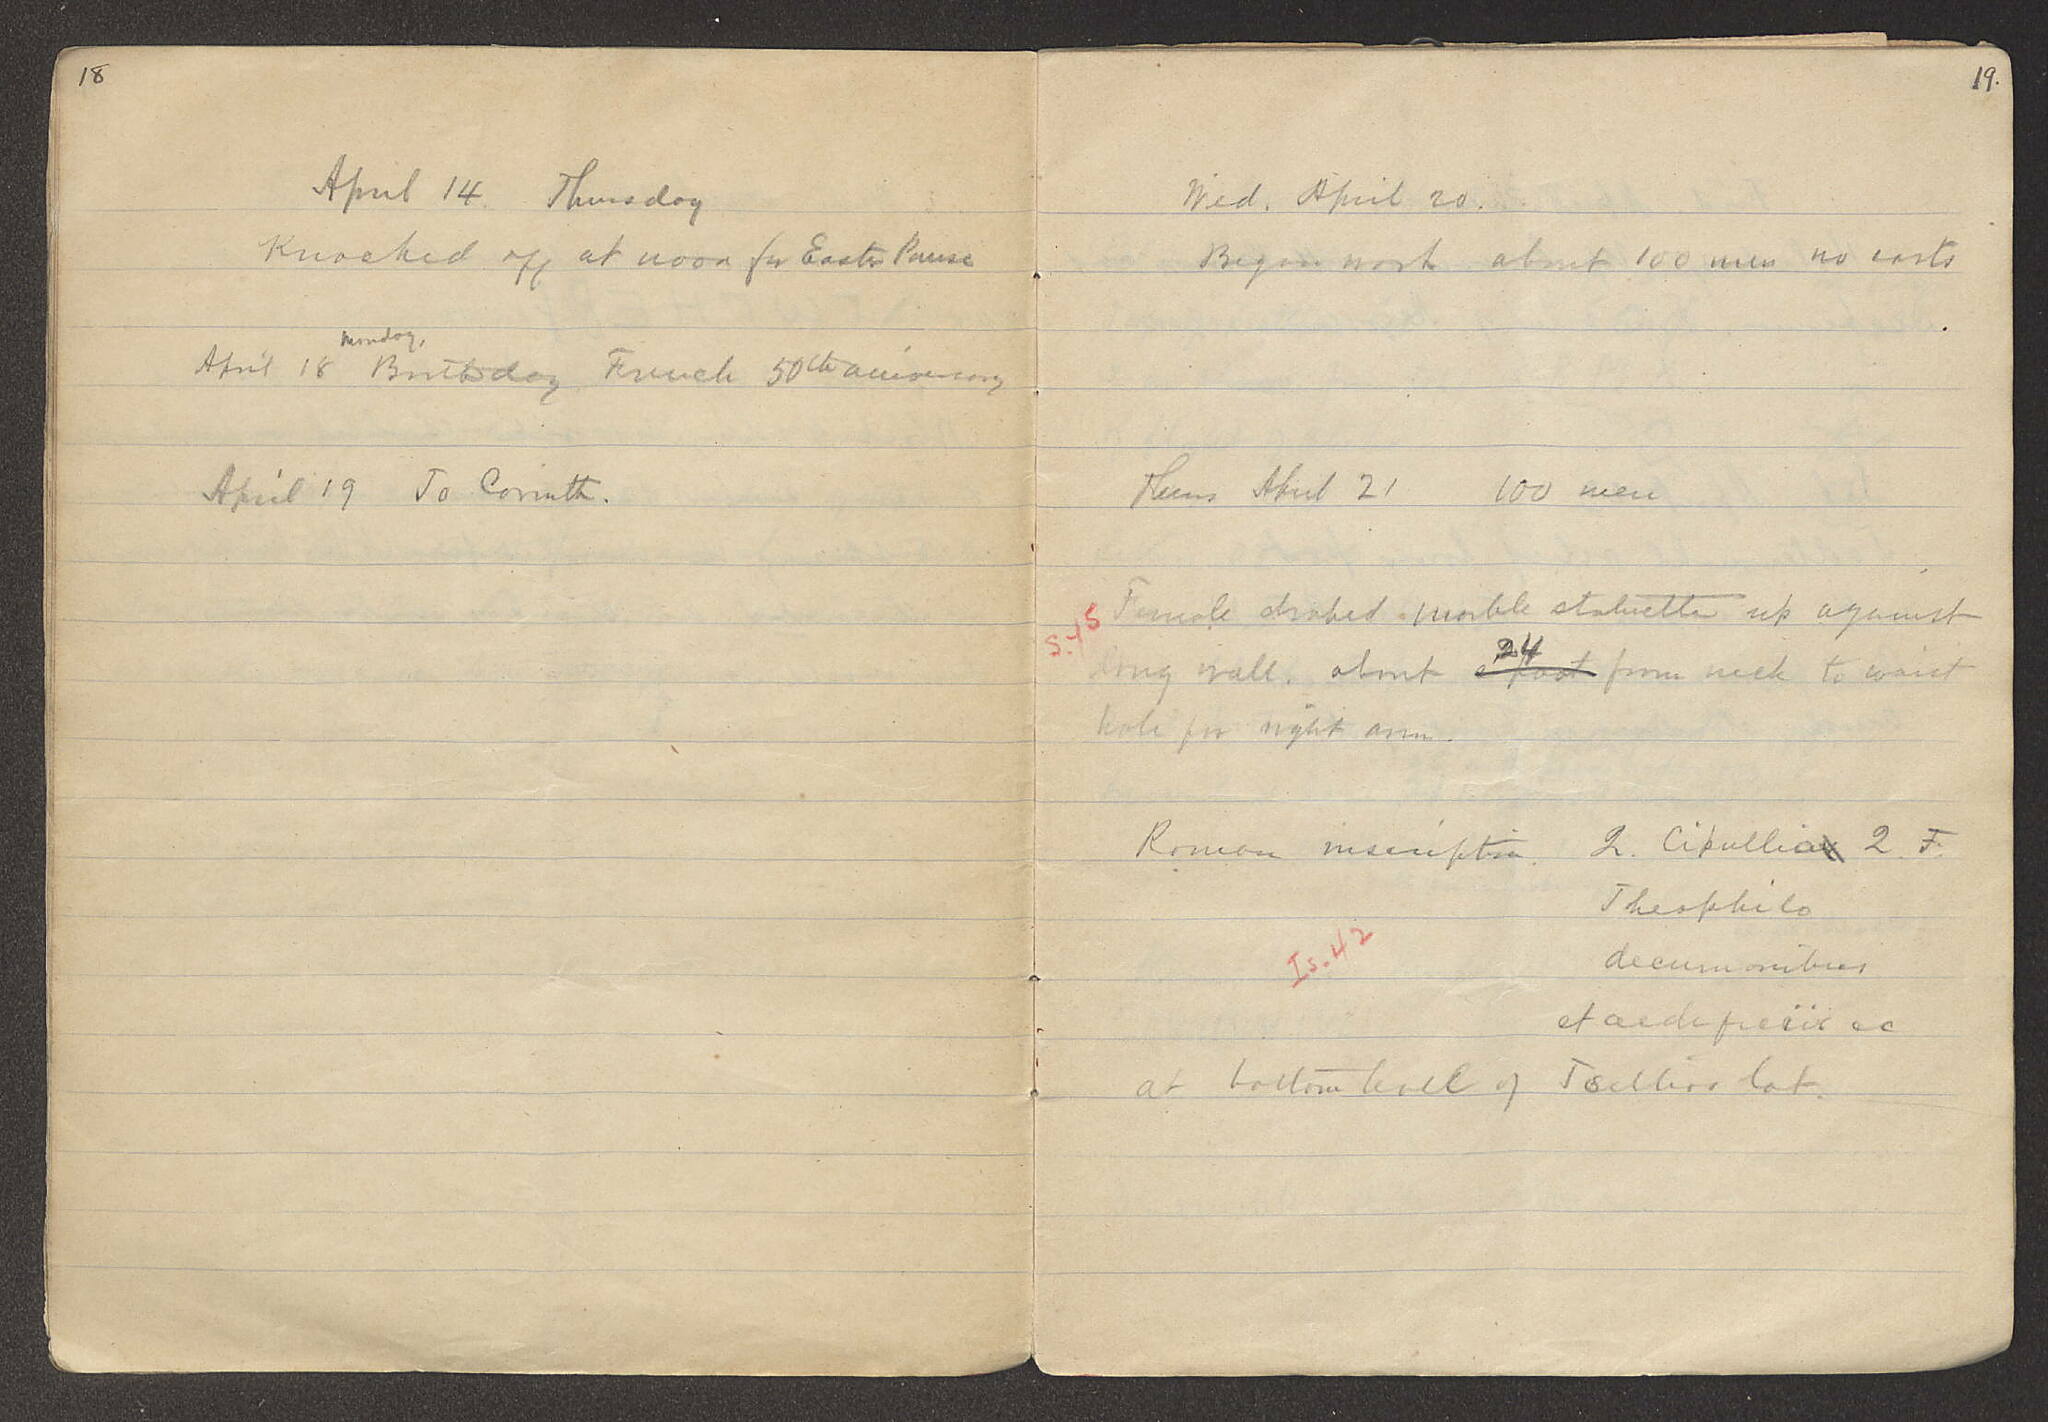 18
April 14. Thursday
Knocked off at noon for Easter Pause
Monday,
April 18 Birthday French 50th anniversary
April 19 To Corinth.
19.
Wed. April 20.
Began work about 100 men no carts
Thurs April 21 100 men
S.45
Female draped marble statuette up against
24
long wall. about a foot from neck to waist
hole for right arm.
Roman inscription. Q. Cipullia Q. F.
Theophilo
Is.42
at bottom level of lot.